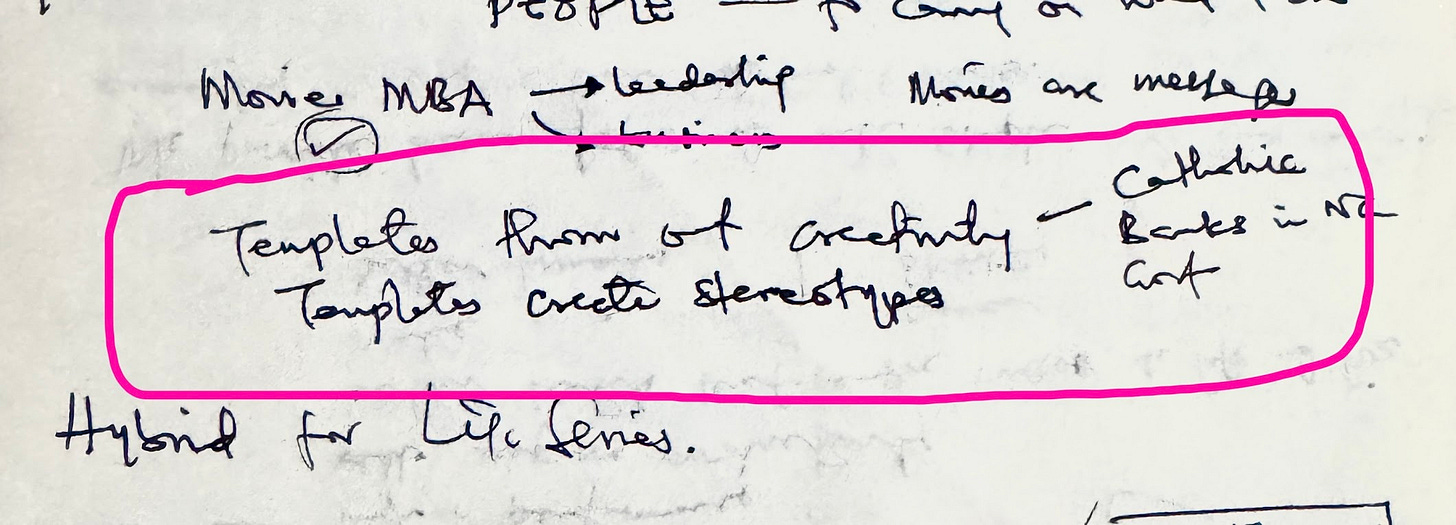 PEOPLE → to carry on what I
Movies MBA → leadership Movies are messages
→ business
Templates throw out creativity — Catholic
Banks in
Templates create stereotypes
Hybrid for Life Series.